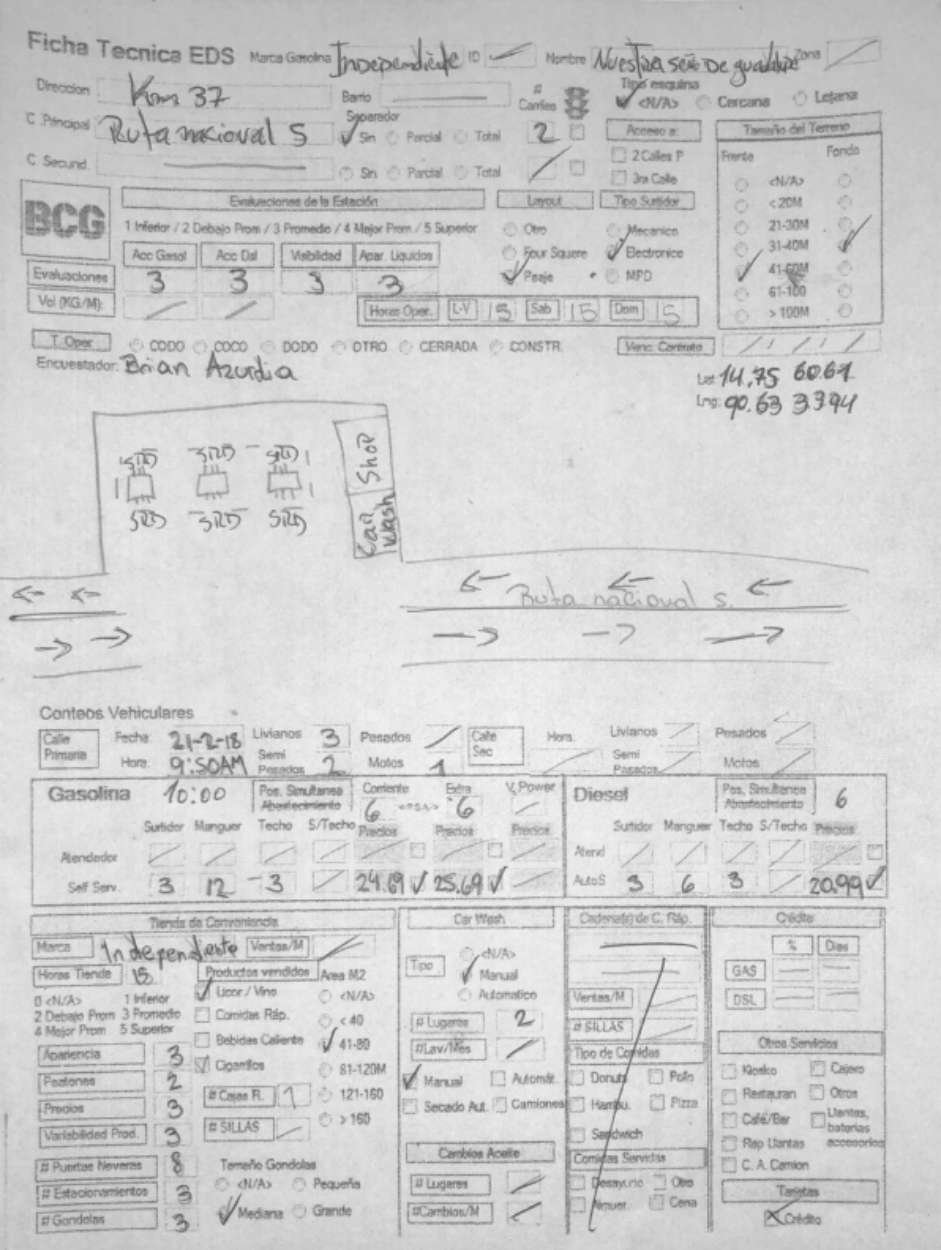 Ficha Tecnica EDS Marca Gasolina Independiente ID Nombre Nuestra señ De guadalupe Zona
Direccion Km 37 Barrio # Carriles Tipo esquina <N/A> Cercana Lejana
C. Principal Ruta nacional 5 Separador Sin Parcial Total 2 Acceso a: Tamaño del Terreno
C. Secund. Sin Parcial Total 2 Calles P 3ra Calle Frente Fondo
BCG Evaluaciones de la Estación Layout Tipo Surtidor <N/A>
1 Inferior / 2 Debajo Prom / 3 Promedio / 4 Mejor Prom / 5 Superior Otro Mecanico < 20M
21-30M
Acc Gasol Acc Dsl Visibilidad Apar. Liquidos Four Square Electronico 31-40M
Evaluaciones 3 3 3 3 Peaje MPD 41-60M
Vol (KG/M): 61-100
Horas Oper. L-V 15 Sab 15 Dom 15 > 100M
T. Oper CODO COCO DODO OTRO CERRADA CONSTR. Venc. Contrato
Encuestador: Brian Azurdia
Lat: 14.75 60.67
Lng: 90.63 3394
SRD SRD SRD Shop
SRD SRD SRD Car Wash
Ruta nacional 5.
Conteos Vehiculares
Calle Primaria Fecha: 21-2-18 Livianos 3 Pesados Calle Sec Hora. Livianos Pesados
Hora: 9:50AM Semi Pesados 2 Motos 1 Semi Pesados Motos
Gasolina 10:00 Pos. Simultanea Abastecimiento Corriente 6 Extra 6 V, Power Diesel Pos. Simultanea Abastecimiento 6
Surtidor Manguer Techo S/Techo Precios Precios Precios Surtidor Manguer Techo S/Techo Precios
Atendedor Atend
Self Serv. 3 12 3 24.69 25.69 AutoS 3 6 3 20.99
Tienda de Conveniencia Car Wash Cadena(s) de C. Ráp. Crédito
Marca Independiente Ventas/M <N/A> % Dias
Horas Tienda 15 Productos vendidos Area M2 Tipo Manual GAS
0 <N/A> 1 Inferior Licor / Vino <N/A> Automatico Ventas/M DSL
2 Debajo Prom 3 Promedio Comidas Ráp. < 40 # Lugares 2 # SILLAS
4 Mejor Prom 5 Superior Bebidas Caliente 41-80 #Lav/Mes Tipo de Comidas Otros Servicios
Apariencia 3 Cigarrillos 81-120M Manual Automát. Donuts Pollo Kiosko Cajero
Peatones 2 # Cajas R. 1 121-160 Secado Aut. Camiones Hambu. Pizza Restauran Otros
Precios 3 > 160 Sandwich Café/Bar Llantas, baterias accesorios
Variabilidad Prod. 3 # SILLAS Cambios Aceite Comidas Servidas Rep Llantas
# Puertas Neveras 8 Tamaño Gondolas # Lugares Desayuno Otro C. A. Camion
# Estacionamientos 3 <N/A> Pequeña #Cambios/M Almuer. Cena Tarjetas
# Gondolas 3 Mediana Grande Crédito